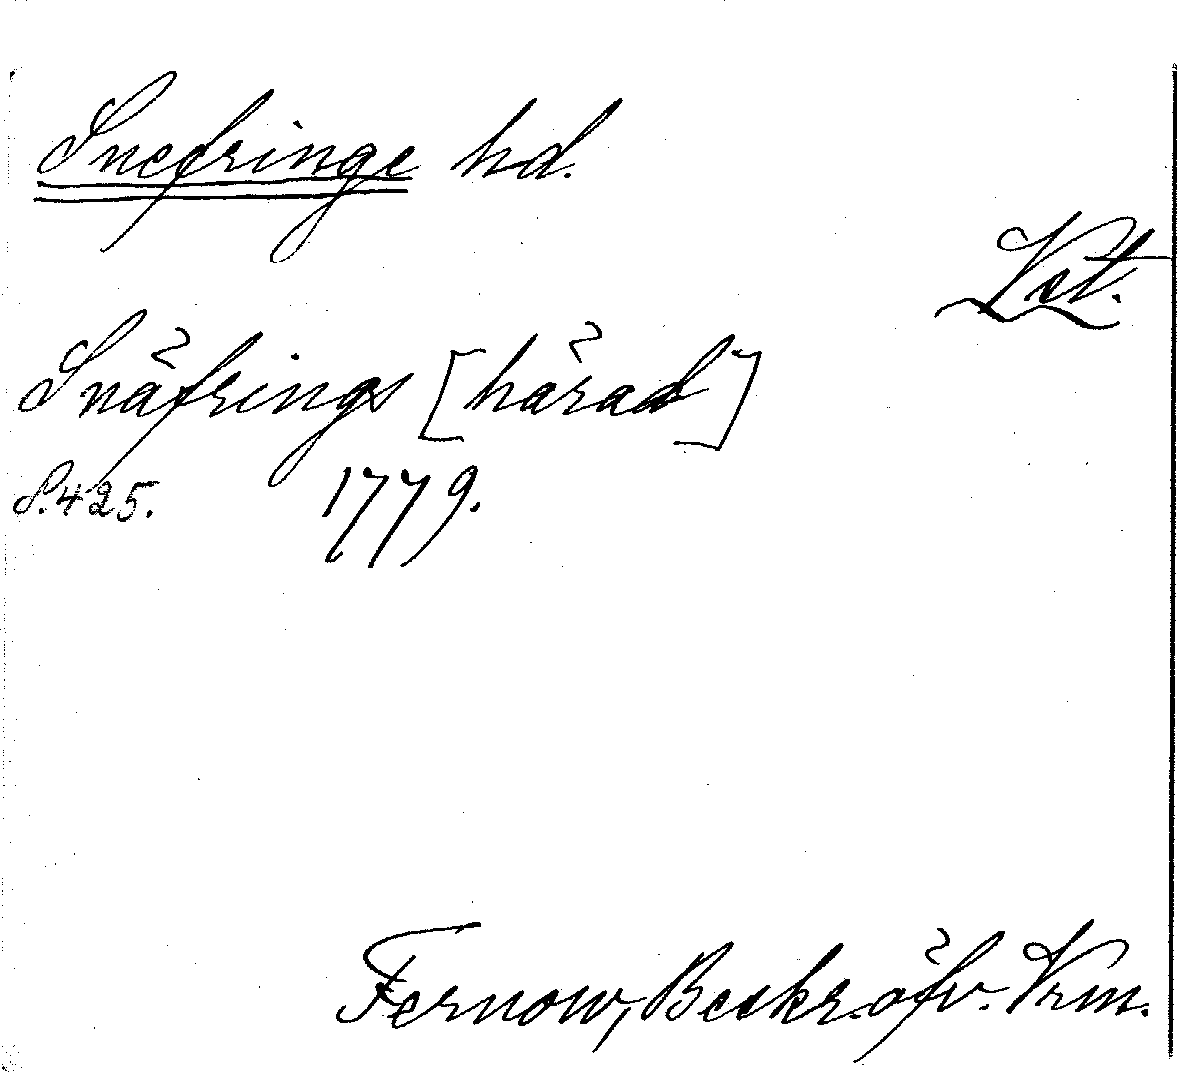 Snefringe hd.
Vst.
Snäfrings [härad]
S. 425. 1779.
Fernow, Beskr. öfv. Vrm.